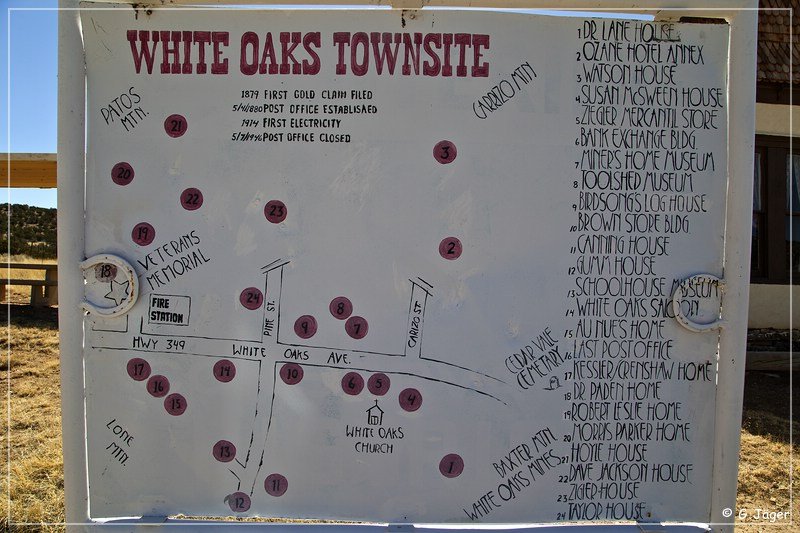 WHITE OAKS TOWNSITE
1879 FIRST GOLD CLAIM FILED
POST OFFICE ESTABLISAED
1914 FIRST ELECTRICITY
POST OFFICE CLOSED
PATOS
MTN.
CARRIZO MTN
21
3
20
22
23
19
2
VETERANS
MEMORIAL
18
FIRE
STATION
24
PINE ST.
8
9
7
CARIZO ST
HWY 349
WHITE OAKS AVE.
CEDAR VALE
CEMETARY
17
16
15
14
10
6
5
4
WHITE OAKS
CHURCH
LONE
MTN.
13
12
11
1
BAXTER MTN
WHITE OAKS MINES
1 DR. LANE HOUSE
2 OZANE HOTEL ANNEX
3 WATSON HOUSE
4 SUSAN McSWEEN HOUSE
5 ZIEGLER MERCANTIL STORE
6 BANK EXCHANGE BLDG.
7 MINER'S HOME MUSEUM
8 TOOLSHED MUSEUM
9 BIRDSONG'S LOG HOUSE
10 BROWN STORE BLDG.
11 CANNING HOUSE
12 GUMM HOUSE
13 SCHOOLHOUSE MUSEUM
14 WHITE OAKS SALOON
15 AU NUE'S HOME
16 LAST POST OFFICE
17 KESSLER/CRENSHAW HOME
18 DR. PADEN HOME
19 ROBERT LESLIE HOME
20 MORRIS PARKER HOME
21 HOYLE HOUSE
22 DAVE JACKSON HOUSE
23 HOUSE
24 TAYLOR HOUSE
© G. Jäger